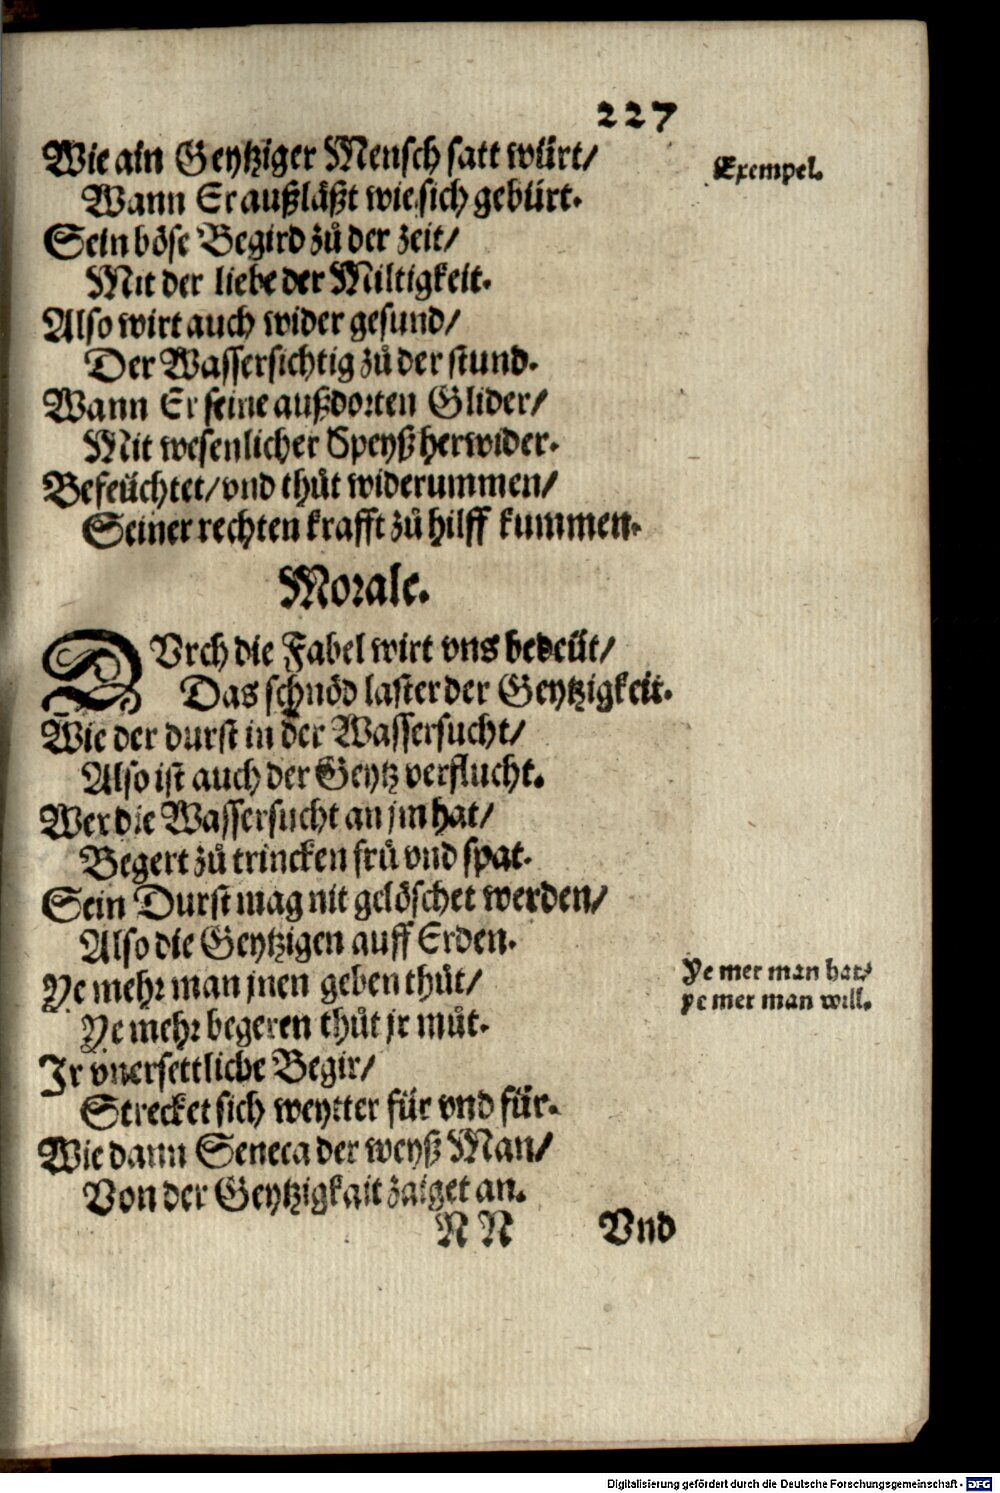 227
Wie ain Geytziger Mensch satt würt/
Exempel.
Wann Er außläßt wie sich gebürt.
Sein böse Begird zů der zeit/
Mit der liebe der Miltigkeit.
Also wirt auch wider gesund/
Der Wassersichtig zů der stund.
Wann Er seine außdorten Glider/
Mit wesenlicher Speyß herwider.
Befeüchtet/ vnd thůt widerummen/
Seiner rechten krafft zů hilff kummen.
Morale.
DVrch die Fabel wirt vns bedeüt/
Das schnöd laster der Geytzigkeit.
Wie der durst in der Wassersucht/
Also ist auch der Geytz verflucht.
Wer die Wassersucht an jm hat/
Begert zů trincken frů vnd spat.
Sein Durst mag nit gelöschet werden/
Also die Geytzigen auff Erden.
Ye mehr man jnen geben thůt/
Ye mer man hat/
ye mer man will.
Ye mehr begeren thůt jr můt.
Jr vnersettliche Begir/
Strecket sich weytter für vnd für.
Wie dann Seneca der weyß Man/
Von der Geytzigkait zaiget an.
N N
Vnd
Digitalisierung gefördert durch die Deutsche Forschungsgemeinschaft - DFG